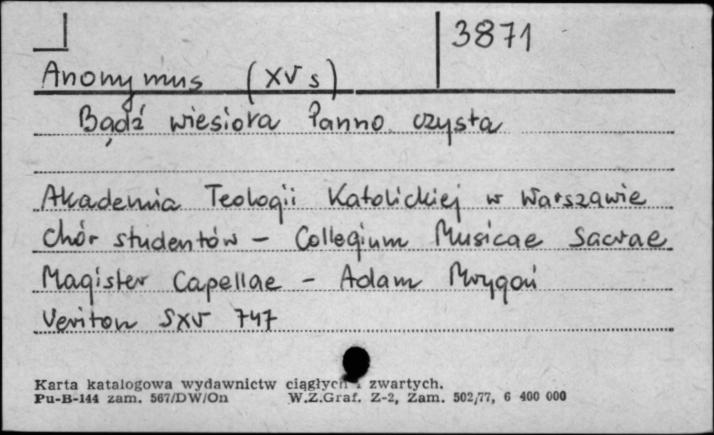 3871
Anonymus (XV s)
Bądź wiesiora Panno czysta
Akademia Teologii Katolickiej w Warszawie
chór studentów - Collegium Musicae Sacrae
Magister Capellae - Adam Mrygoń
Veriton SXV 747
Karta katalogowa wydawnictw ciągłych i zwartych.
Pu-B-144 zam. 567/DW/On W.Z.Graf. Z-2, Zam. 502/77, 6 400 000